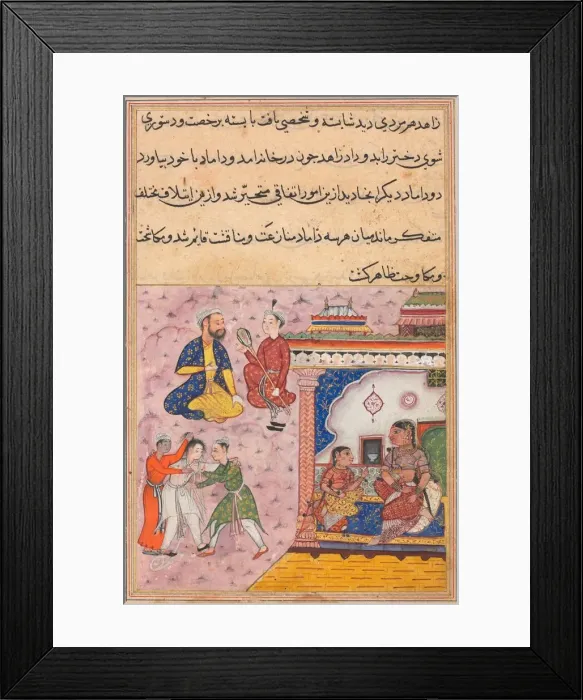 زاهد مردی دید شایسته و شخصی یافت بایسته برخصت و دستوری
شوی دختر را بدو داد زاهد چون در خانه امد و داماد با خود بیاورد
دو داماد دیگر انجا دید ازین امور اتفاقی متحیّر شد و ازین ایتلاف مختلف
متفکر ماند میان هر سه داماد منازعت و مناقشت قایم شد و مکاشحت
و مکاوحت ظاهر کشت